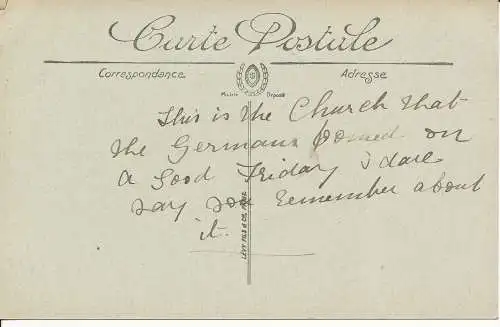 Carte Postale
Correspondance
Adresse
Modèle Déposé
This is the Church that
the Germans bomed on
a Good Friday I dare
say you remember about
it.
LÉVY FILS & CO, PARIS